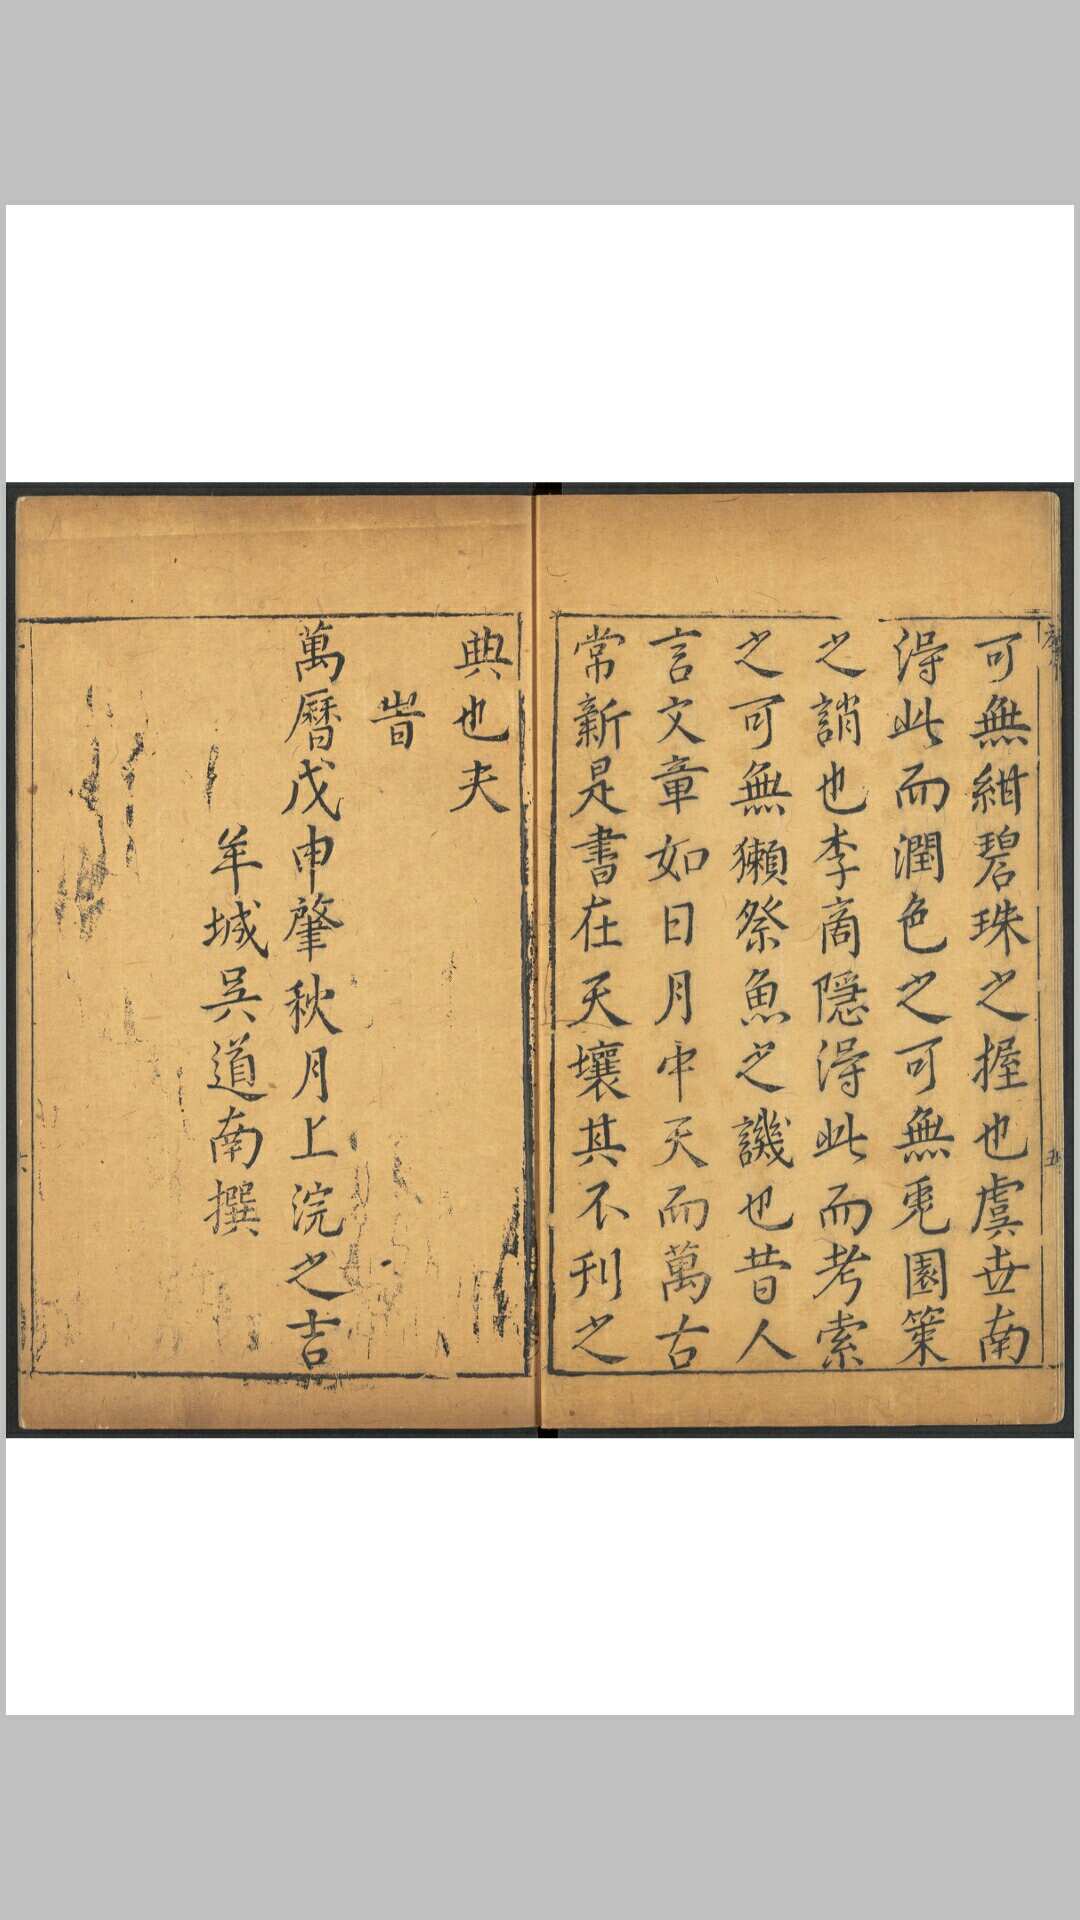 可無紺碧珠之握也虞世南
得此而潤色之可無兎園策
之誚也李商隱得此而考索
之可無獺祭魚之譏也昔人
言文章如日月中天而萬古
常新是書在天壤其不刊之
典也夫
旹
萬曆戊申肇秋月上浣之吉
羊城吳道南撰